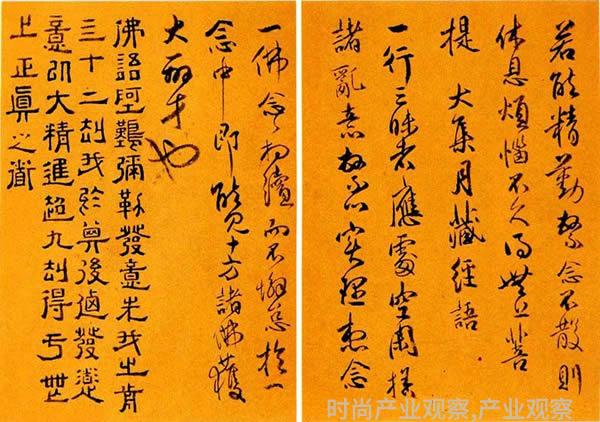 若能精勤繫念不散則
休息煩惱不久得無上菩
提 大集月藏經語
一行三昧者應處空閑捨
諸亂意心實理想念
一佛念念相續而不懈怠於一
念中即能見十方諸佛獲
大辯才也
佛語阿難彌勒發意先我之前
三十二劫我於其後乃發道
意以大精進超九劫得于無
上正真之道
时尚产业观察,产业观察